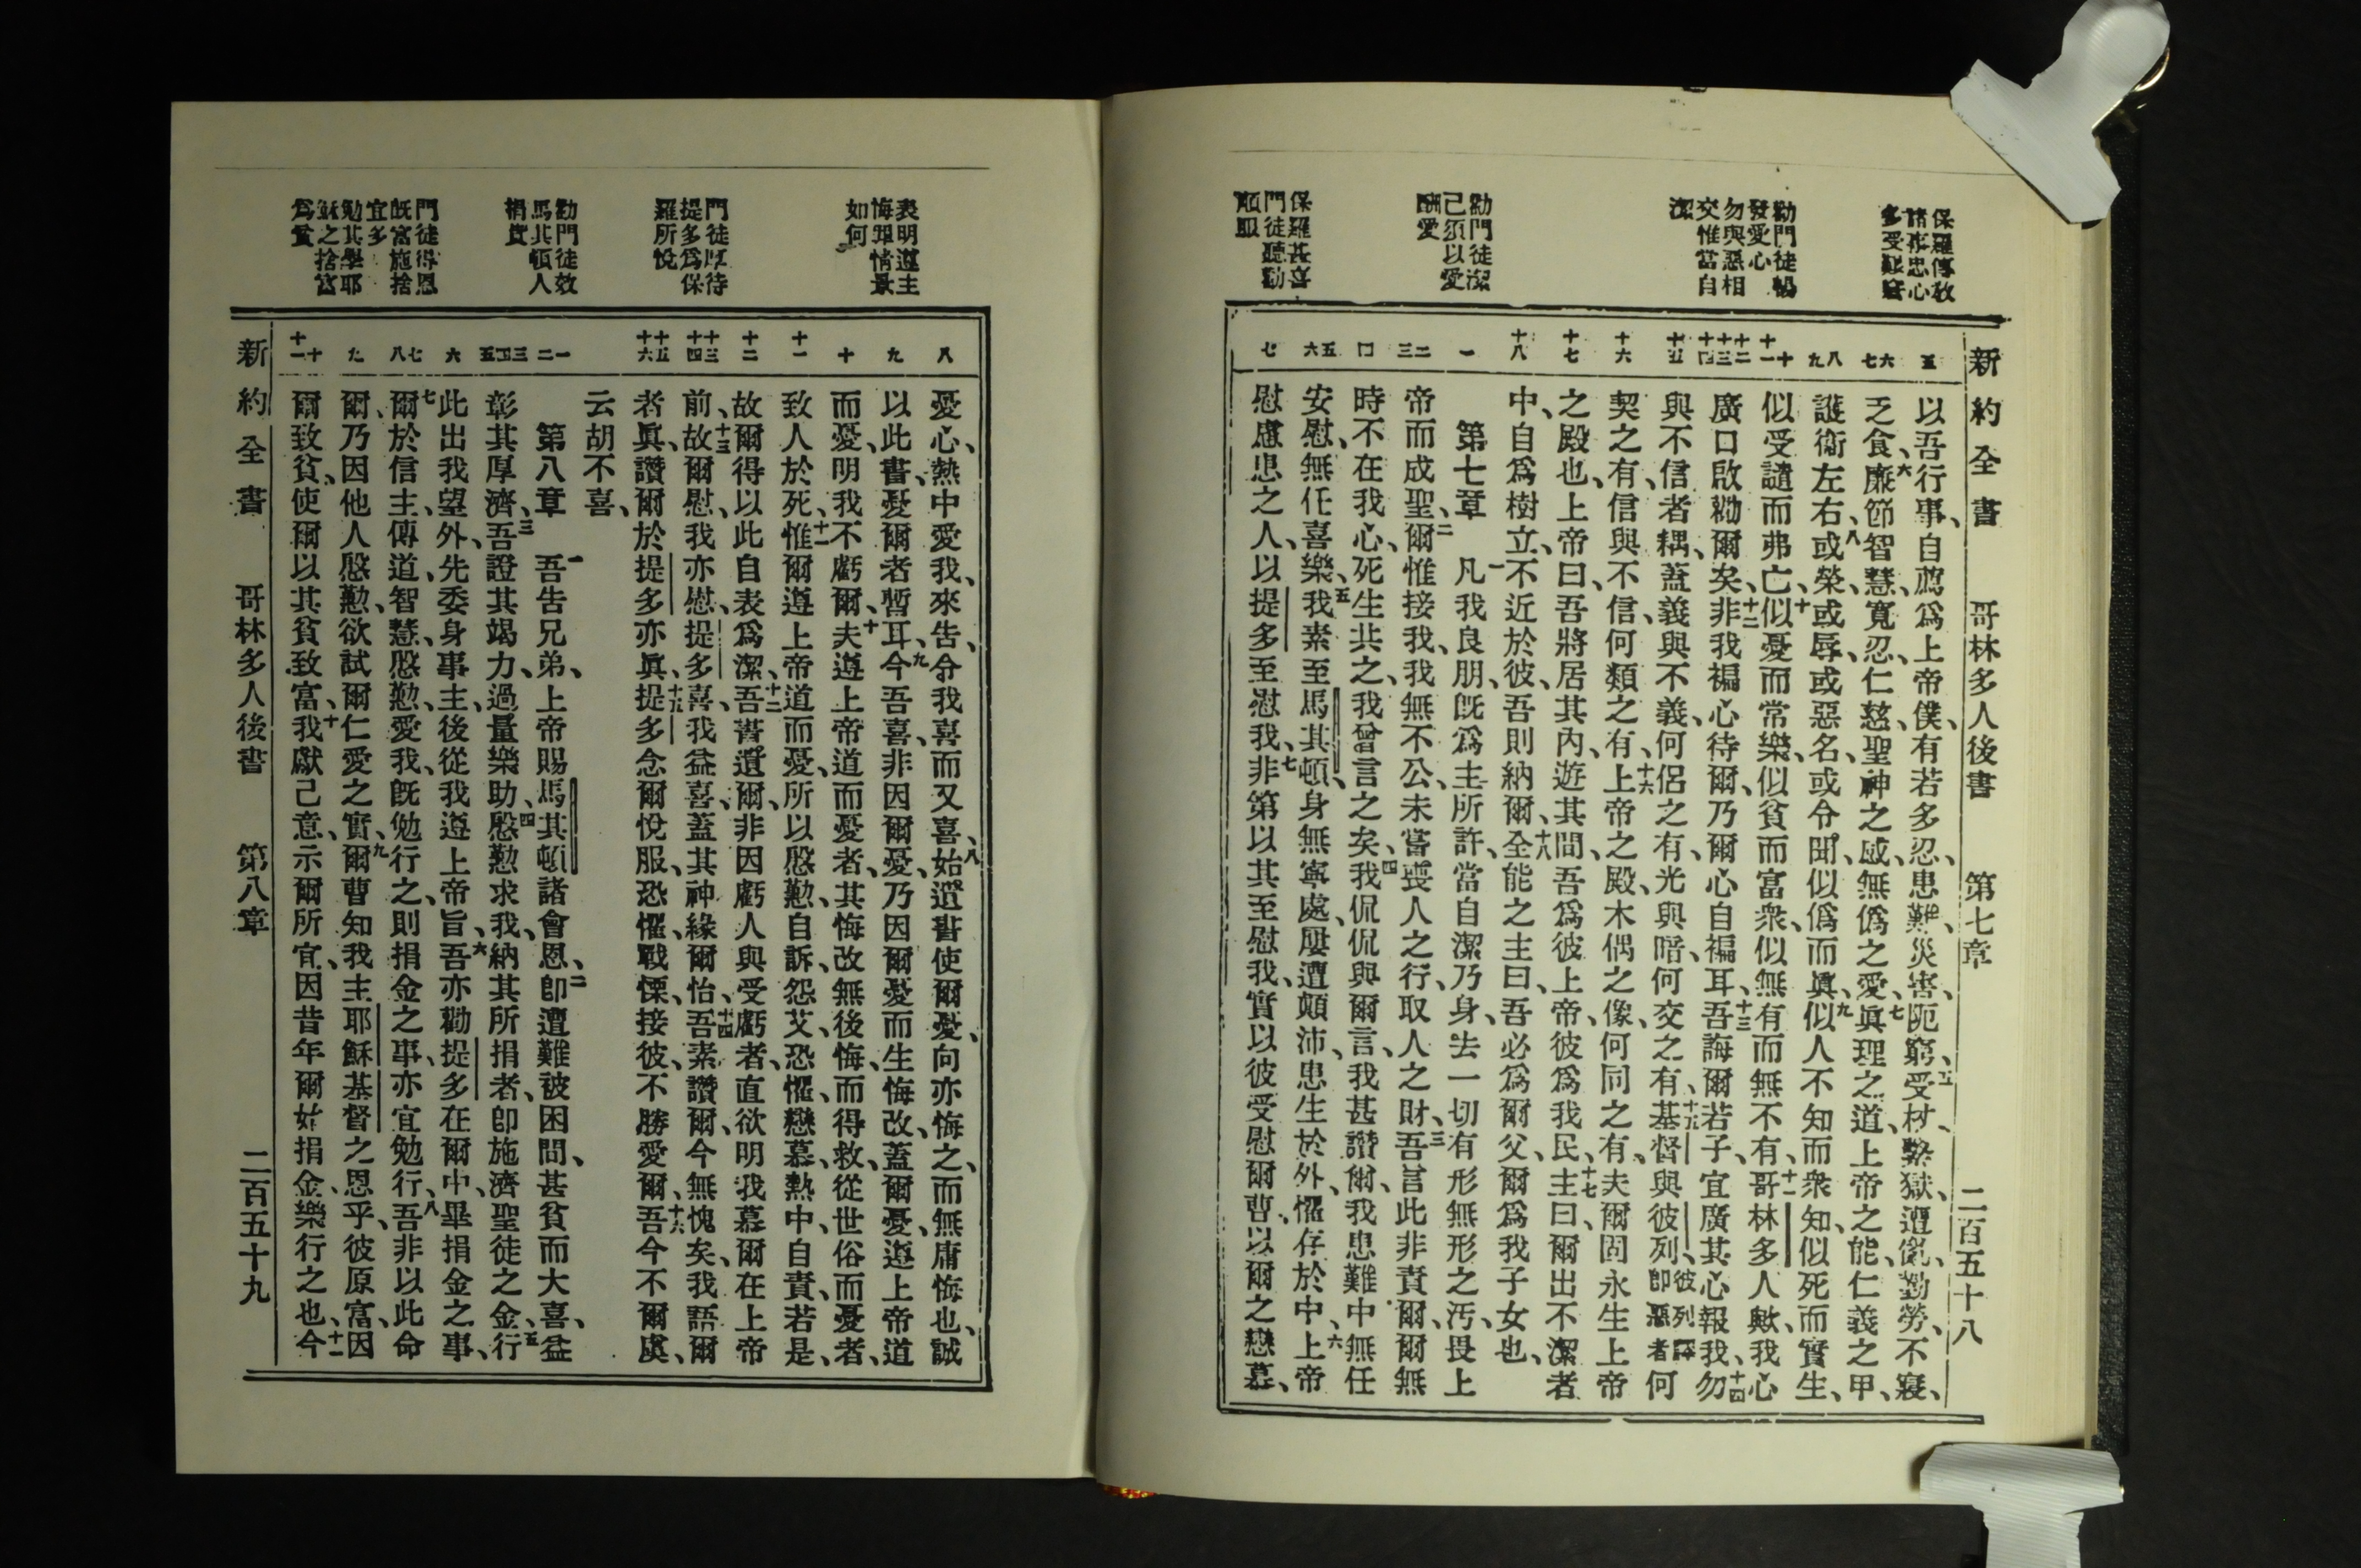 新約全書 哥林多人後書 第七章 二百五十八
保羅傳敎
諸事忠心
多受艱窘
勸門徒暢
發愛心
勿與惡相
交惟當自
潔
勸門徒潔
己須以愛
酬愛
保羅甚喜
門徒聽勸
順服
五
六
七
八
九
十
十一
十二
十三
十四
十五
十六
十七
十八
一
二
三
四
五
六
七
以吾行事、自薦爲上帝僕、有若多忍、患難、災害、阨窮、五受杖、繫獄、遭亂、勤勞、不寢、
乏食、六廉節智慧、寬忍、仁慈、聖神之感、無僞之愛、七眞理之道、上帝之能、仁義之甲、
護衛左右、八或榮、或辱、或惡名、或令聞、似僞而眞、九似人不知而衆知、似死而實生、
似受譴而弗亡、十似憂而常樂、似貧而富衆、似無有而無不有、十一哥林多人歟、我心
廣口啟勸爾矣、十二非我褊心待爾、乃爾心自褊耳、十三吾誨爾若子、宜廣其心報我、十四勿
與不信者耦、蓋義與不義、何侶之有、光與暗、何交之有、十五基督與彼列、彼列譯卽惡者何
契之有、信與不信、何類之有、十六上帝之殿、木偶之像、何同之有、夫爾固永生上帝
之殿也、上帝曰、吾將居其內、遊其間、吾爲彼上帝、彼爲我民、十七主曰、爾出不潔者
中、自爲樹立、不近於彼、吾則納爾、十八全能之主曰、吾必爲爾父、爾爲我子女也、
第七章 一凡我良朋、旣爲主所許、當自潔乃身、去一切有形無形之汚、畏上
帝而成聖、二爾惟接我、我無不公、未嘗喪人之行、取人之財、三吾言此非責爾、爾無
時不在我心、死生共之、我曾言之矣、四我侃侃與爾言、我甚讚爾、我患難中無任
安慰、無任喜樂、五我素至馬其頓、身無寧處、屢遭顛沛、患生於外、懼存於中、六上帝
慰慮患之人、以提多至慰我、七非第以其至慰我、實以彼受慰爾曹、以爾之戀慕、
表明遵主
悔罪情景
如何
門徒厚待
提多爲保
羅所悅
勸門徒效
馬其頓人
捐貲
門徒得恩
旣富施捨
宜多
勉其學耶
穌之捨富
爲貧
八
九
十
十一
十二
十三
十四
十五
十六
一
二
三
四
五
六
七
八
九
十
十一
憂心、熱中愛我、來告、令我喜而又喜、八始遺書使爾憂、向亦悔之、而無庸悔也、誠
以此書、憂爾者暫耳、九今吾喜、非因爾憂、乃因爾憂而生悔改、蓋爾憂、遵上帝道
而憂、明我不虧爾、十夫遵上帝道而憂者、其悔改無後悔、而得救、從世俗而憂者、
致人於死、十一惟爾遵上帝道而憂、所以慇懃、自訴、怨艾、恐懼、戀慕、熱中、自責、若是、
故爾得以此自表爲潔、十二吾書遺爾、非因虧人與受虧者、直欲明我慕爾在上帝
前、十三故爾慰、我亦慰、提多喜、我益喜、蓋其神緣爾怡、十四吾素讚爾、今無愧矣、我語爾
者眞、讚爾於提多亦眞、十五提多念爾悅服、恐懼、戰慄、接彼、不勝愛爾、十六吾今不爾虞、
云胡不喜、
第八章 一吾告兄弟、上帝賜馬其頓諸會恩、二卽遭難被困問、甚貧而大喜、益
彰其厚濟、三吾證其竭力、過量樂助、四慇懃求我、納其所捐者、卽施濟聖徒之金、五行
此出我望外、先委身事主、後從我遵上帝旨、六吾亦勸提多在爾中、畢捐金之事、
七爾於信主、傳道、智慧、慇懃、愛我、旣勉行之、則捐金之事、亦宜勉行、八吾非以此命
爾、乃因他人慇懃、欲試爾仁愛之實、九爾曹知我主耶穌基督之恩乎、彼原富、因
爾致貧、使爾以其貧致富、十我獻己意、示爾所宜、因昔年爾始捐金、樂行之也、十一今
新約全書 哥林多人後書 第八章 二百五十九